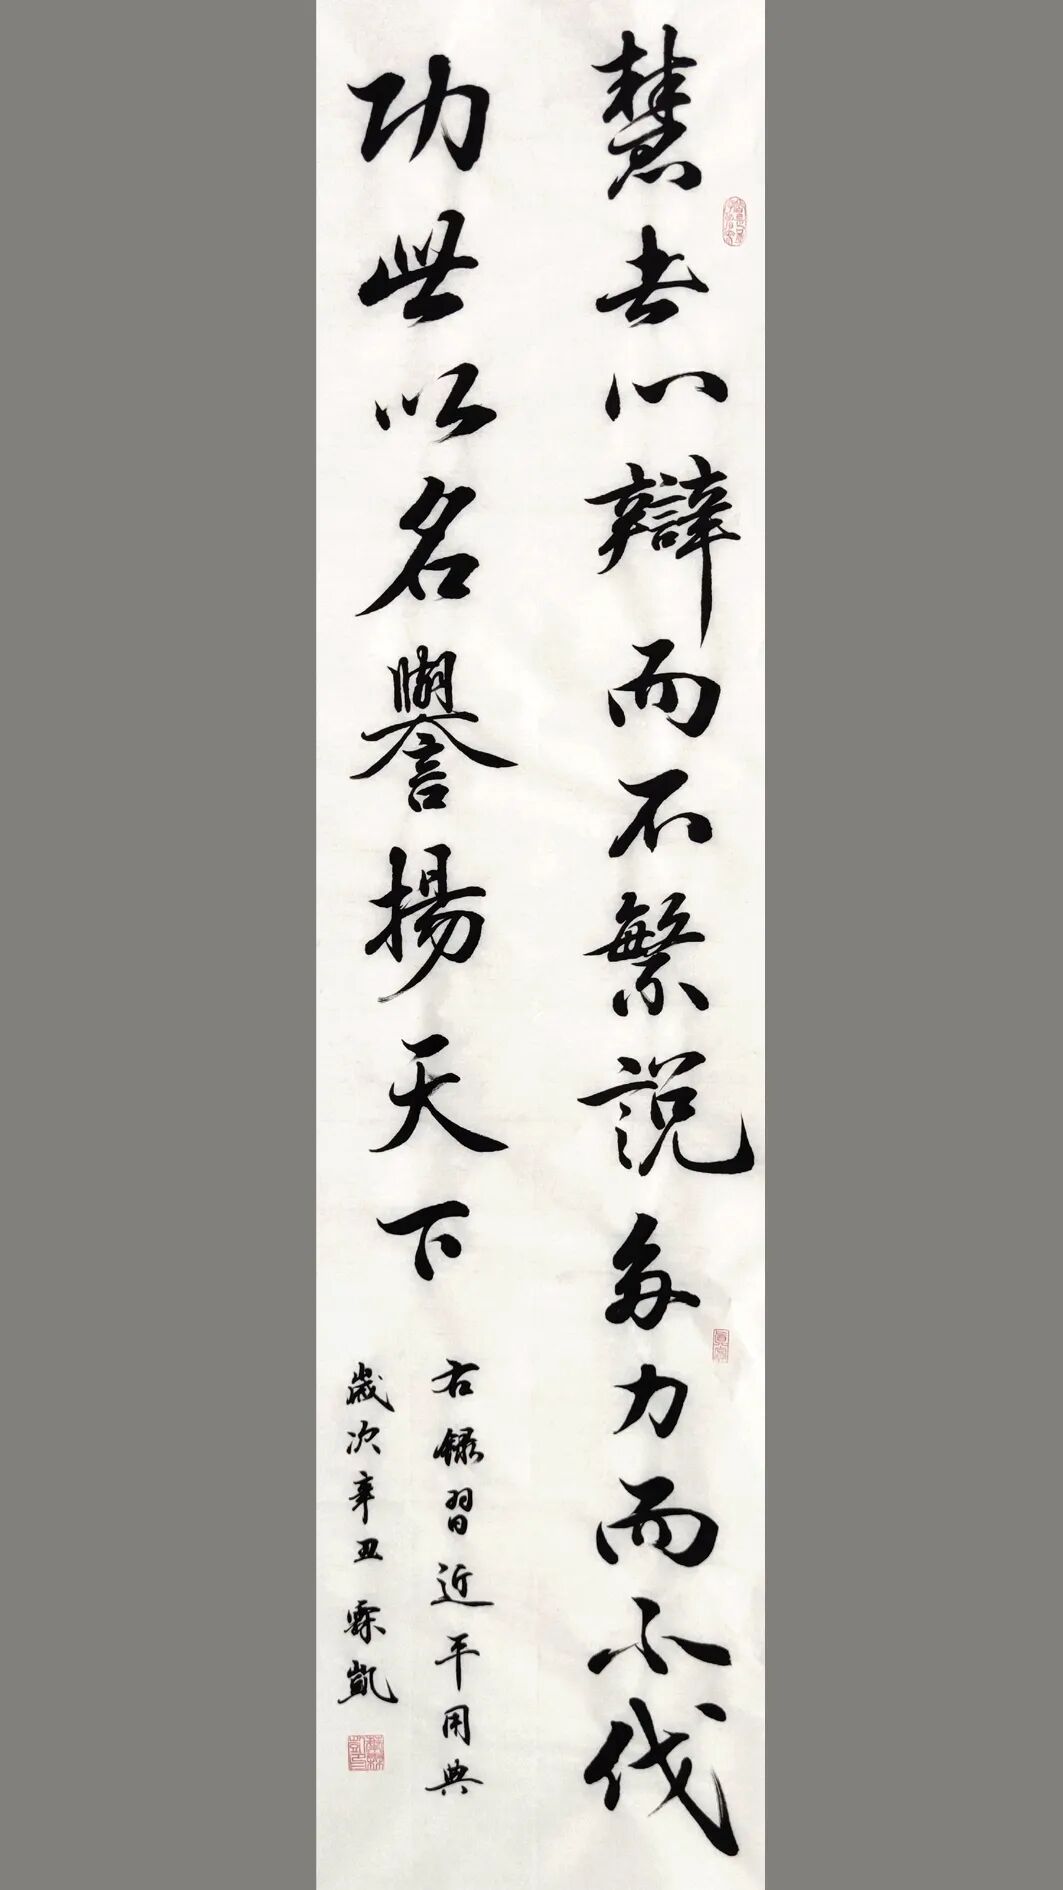 慧者心辯而不繁說多力而不伐
功此以名譽揚天下
右錄習近平用典
歲次辛丑 霖凱